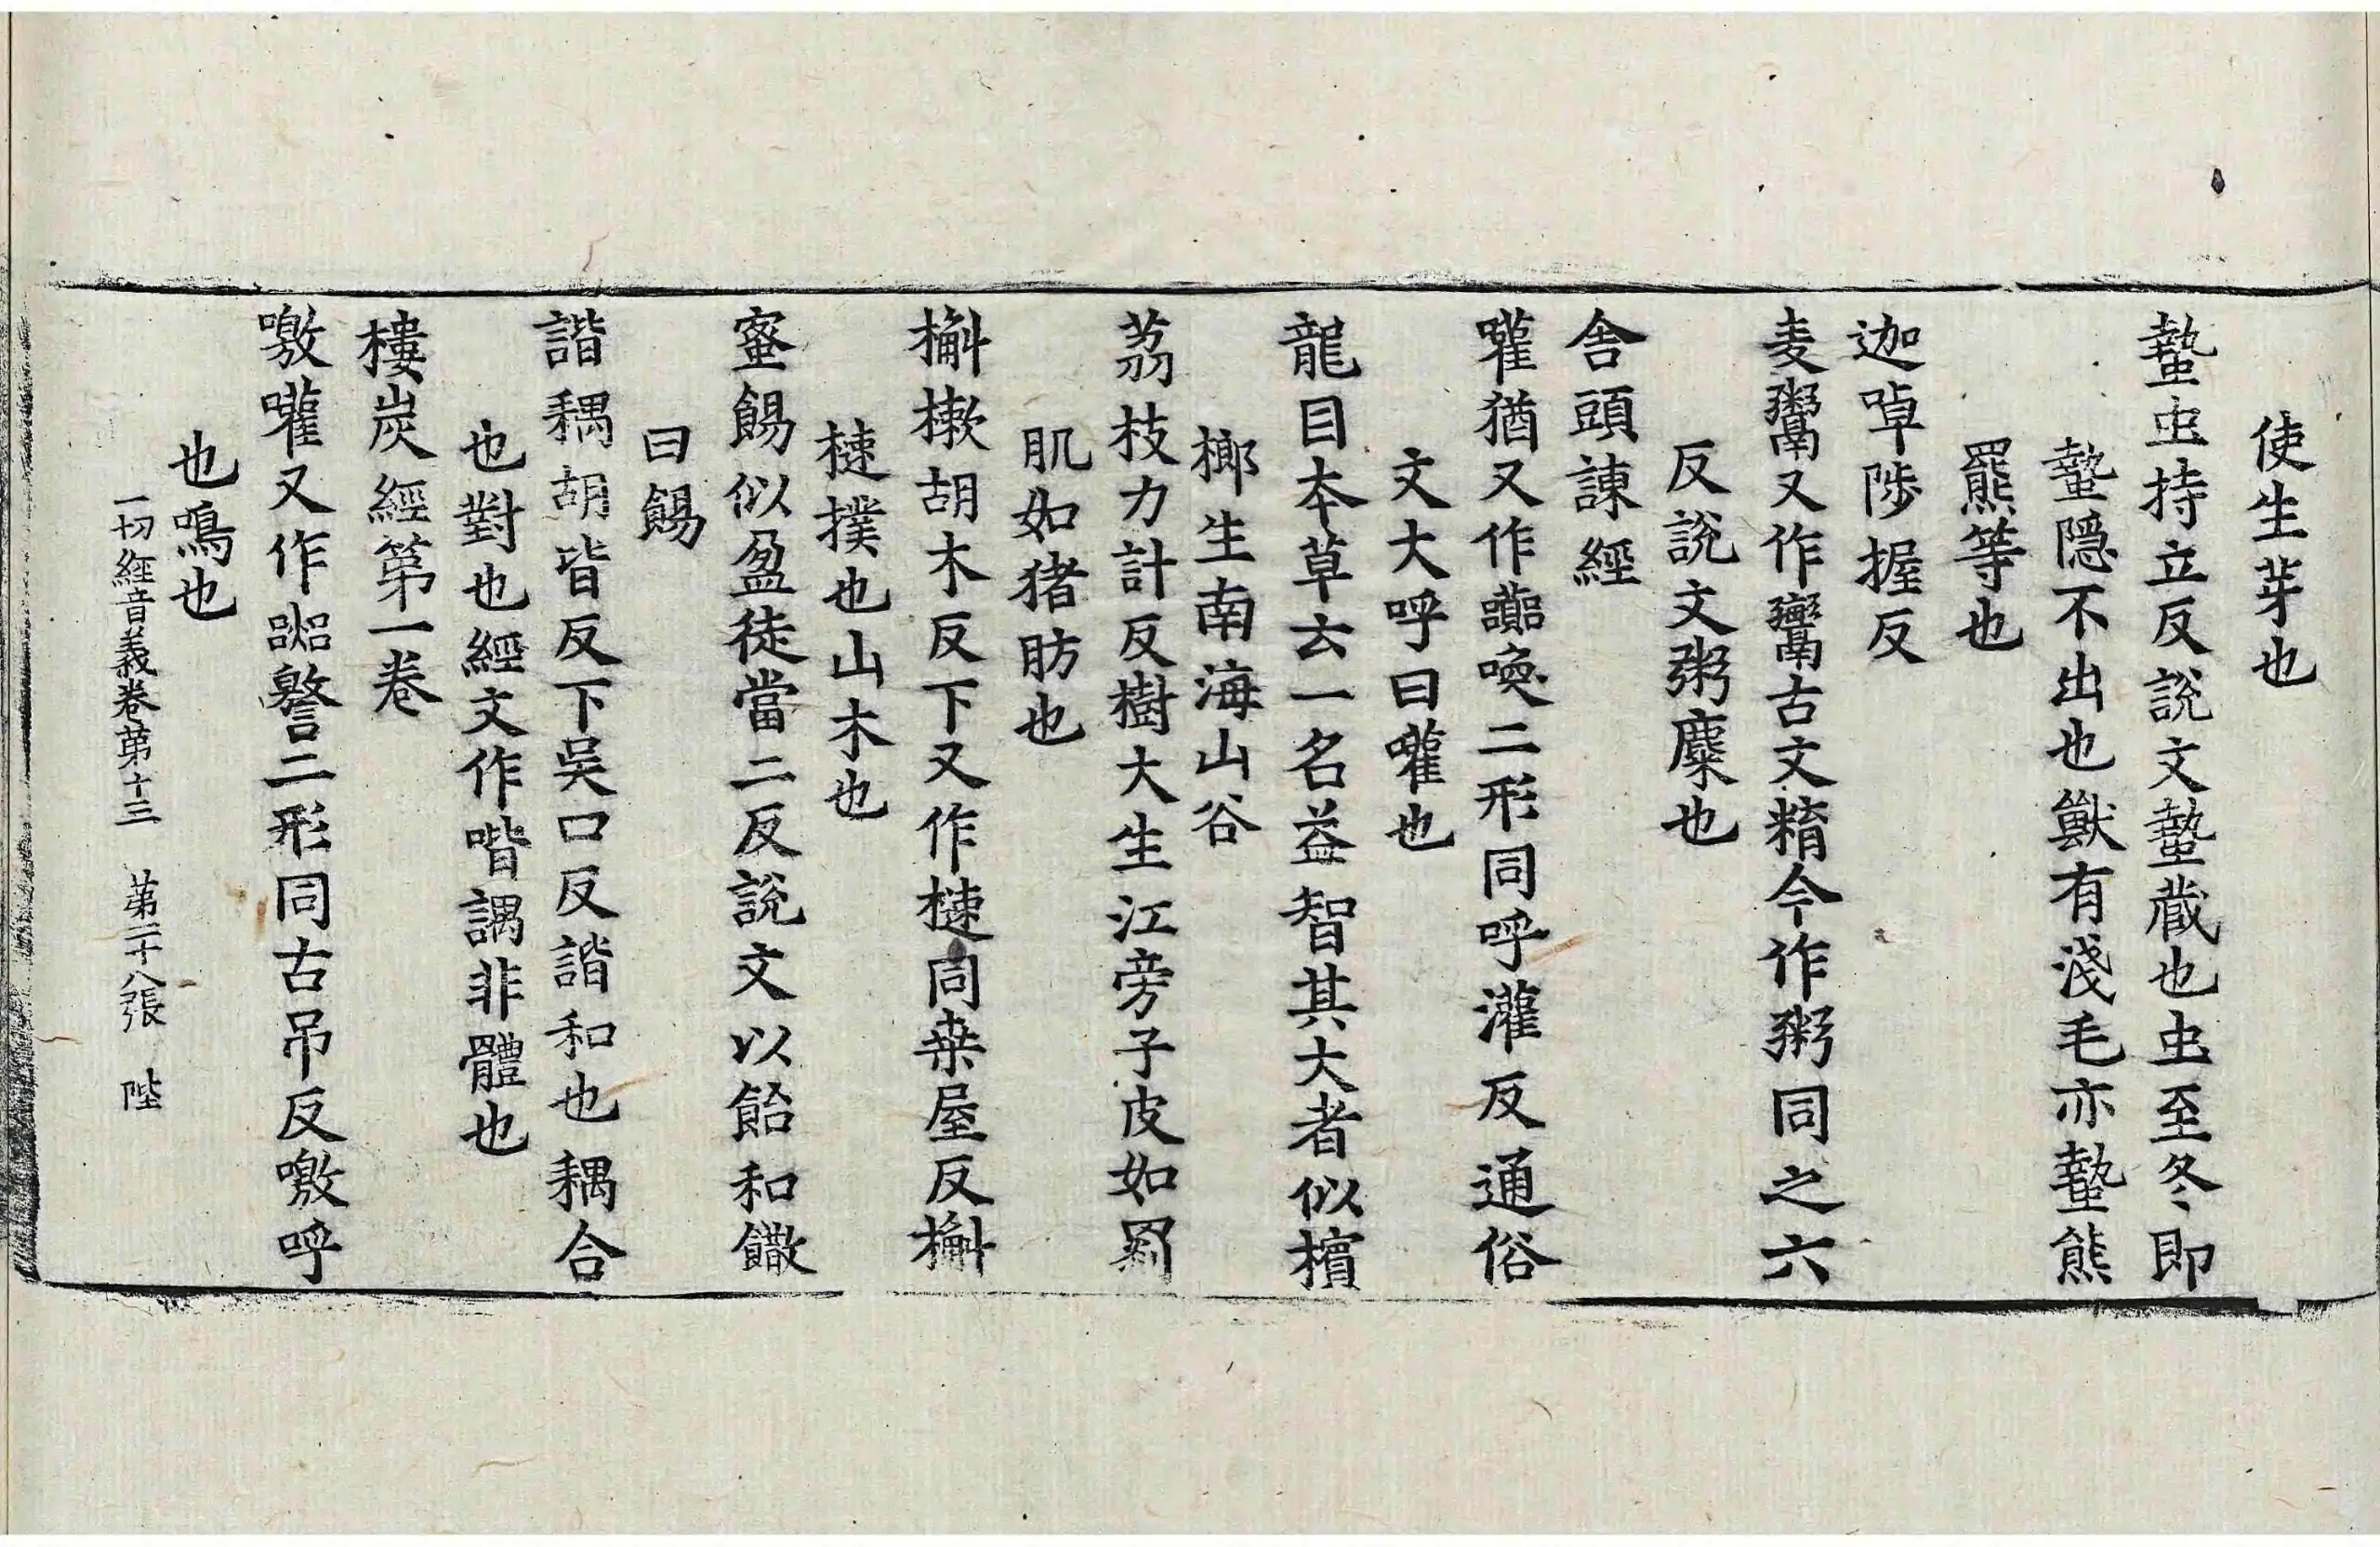 使生芽也
蟄虫持立反說文蟄蔵也虫至冬即
蟄隱不出也獸有淺毛亦蟄熊
羆等也
迦啅陟握反
麦鬻又作䰞古文精今作粥同之六
反說文粥糜也
舍頭諫經
嚾猶又作㘚喚二形同呼灌反通俗
文大呼曰嚾也
龍目本草云一名益智其大者似檳
榔生南海山谷
茘枝力計反樹大生江旁子皮如𦋺
肌如猪肪也
槲樕胡木反下又作楝同桒屋反槲
楝撲也山木也
蜜餳似盈徒當二反說文以飴和饊
曰餳
諧耦胡皆反下吳口反諧和也耦合
也對也經文作喈調非體也
樓炭經第一卷
噭嚾又作𧭅警二形同古吊反噭呼
也鳴也
一切經音義卷第十三　第二十八張　陛